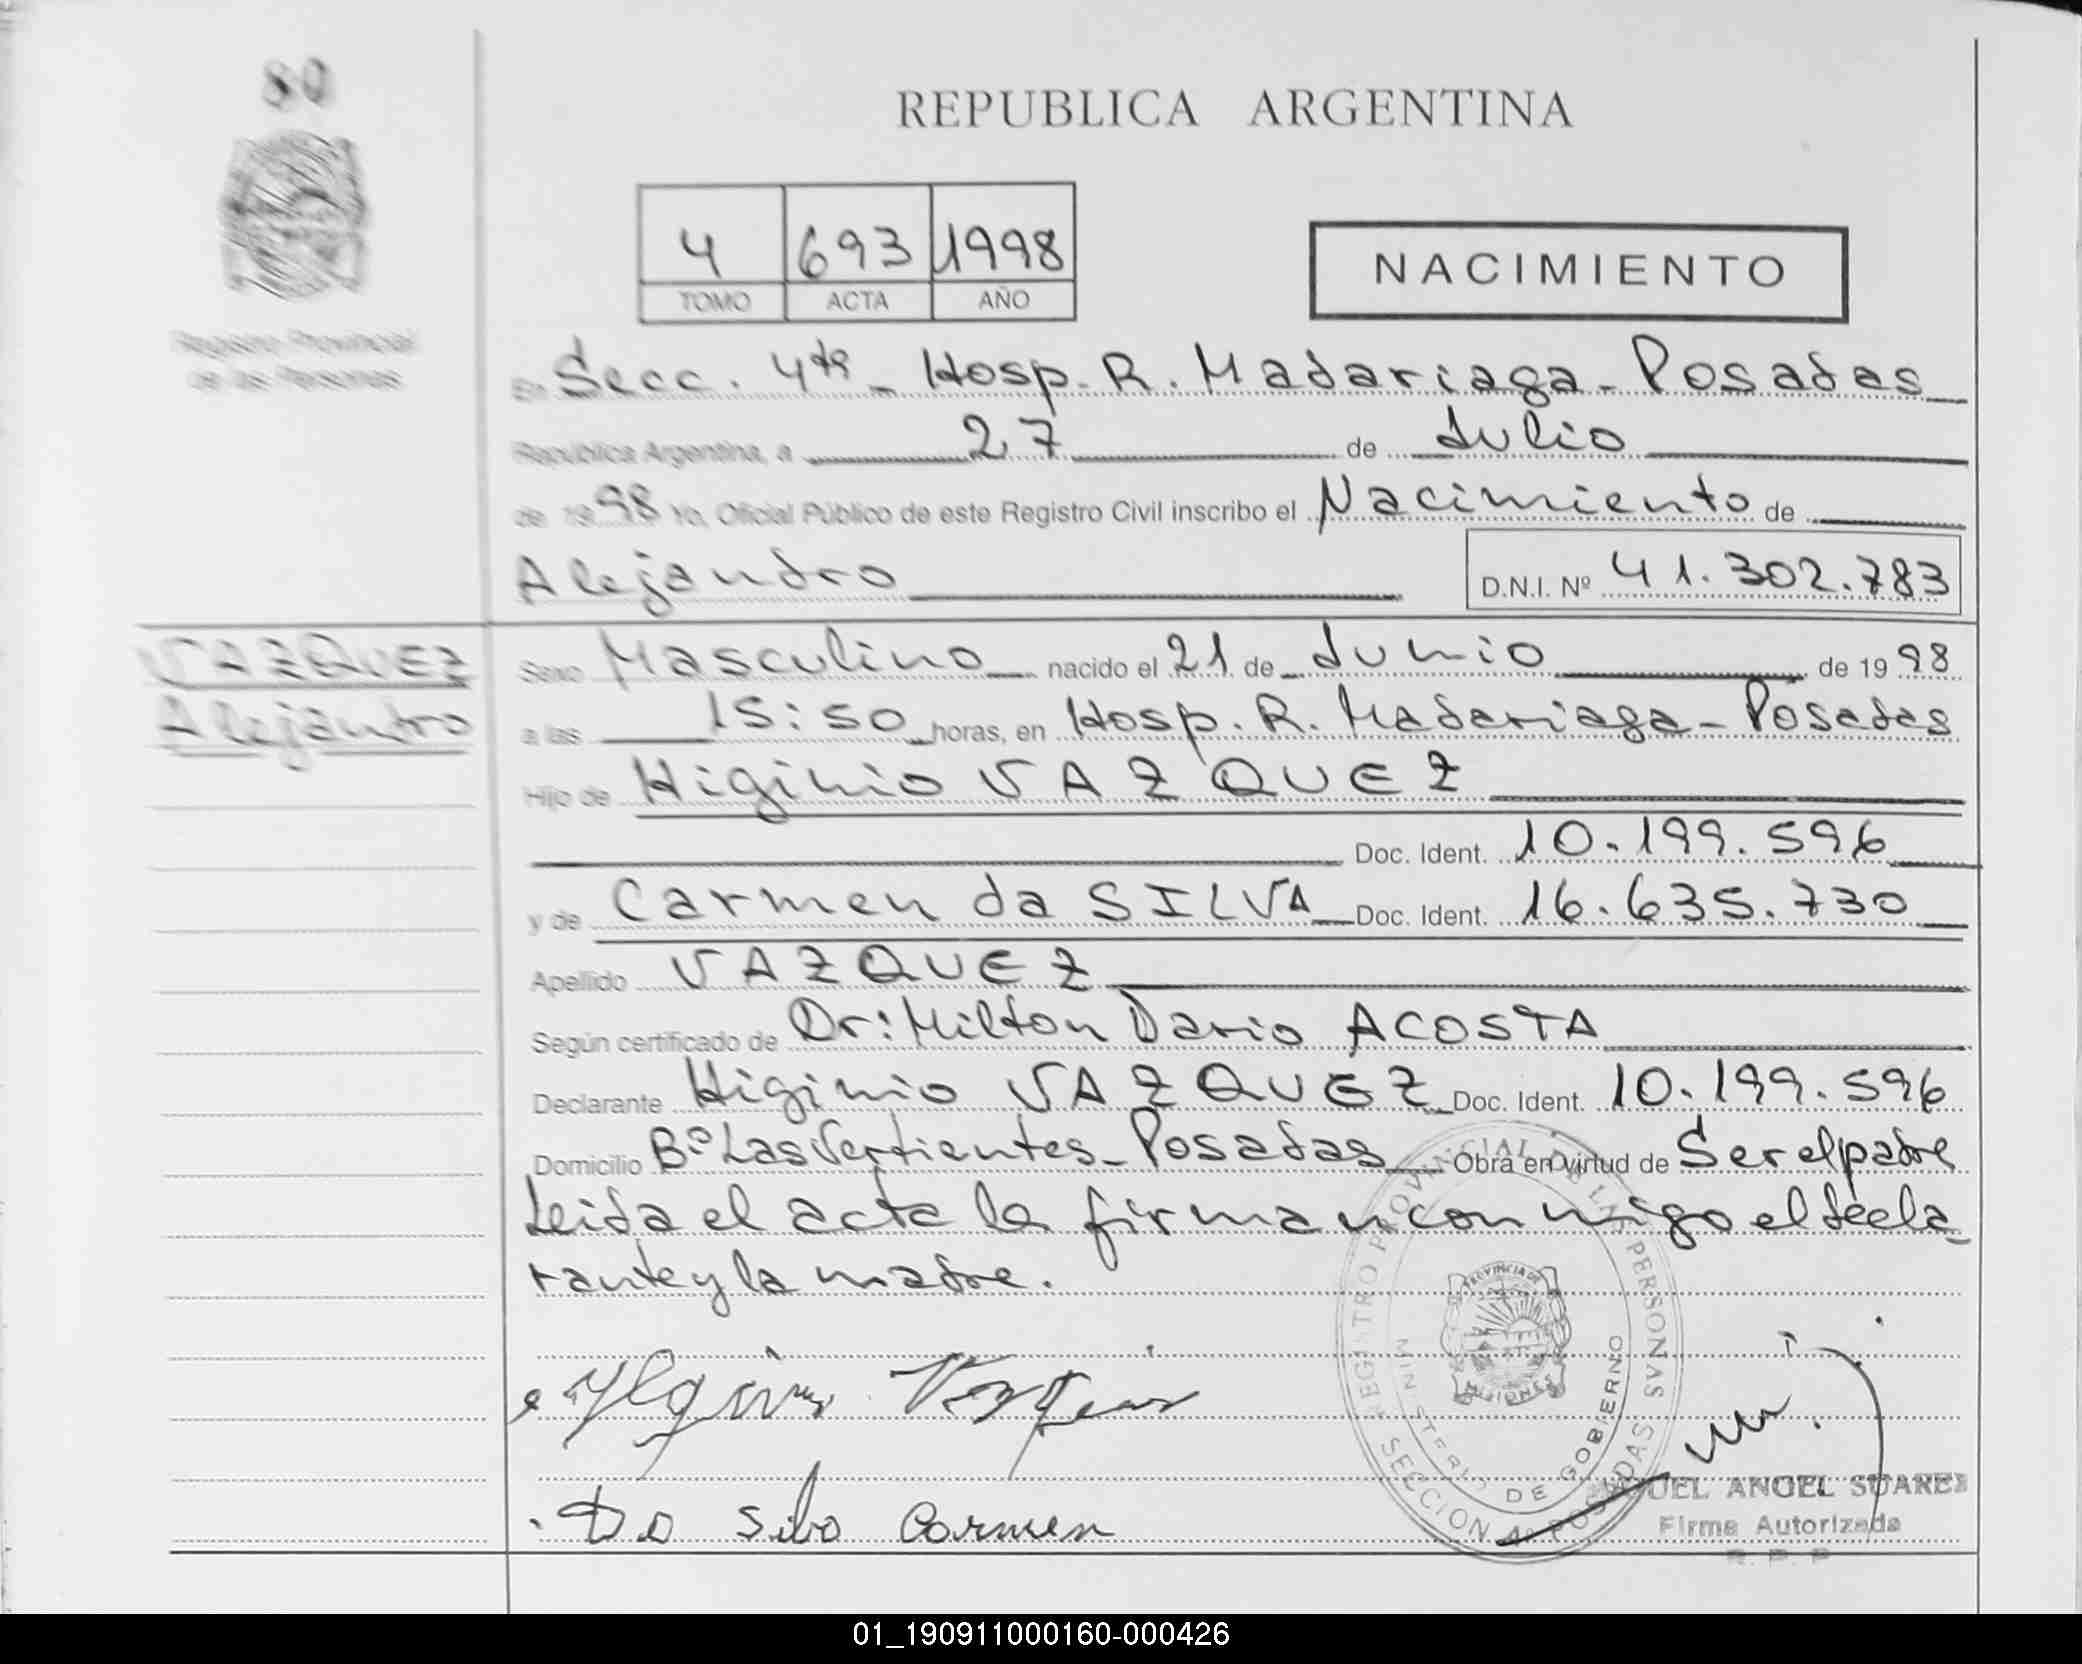 80
REPUBLICA ARGENTINA
4 693 1998
TOMO ACTA AÑO
NACIMIENTO
Registro Provincial
de las Personas
En Secc. 4ta - Hosp. R. Madariaga - Posadas
República Argentina, a 27 de Julio
de 1998 Yo, Oficial Público de este Registro Civil inscribo el Nacimiento de
Alejandro D.N.I. Nº 41.302.783
VAZQUEZ
Alejandro
Sexo Masculino nacido el 21 de Junio de 1998
a las 15:50 horas, en Hosp. R. Madariaga - Posadas
Hijo de Higinio VAZQUEZ
Doc. Ident. 10.199.596
y de Carmen da SILVA Doc. Ident. 16.635.730
Apellido VAZQUEZ
Según certificado de Dr: Milton Dario ACOSTA
Declarante Higinio VAZQUEZ Doc. Ident. 10.199.596
Domicilio Bº Las Vertientes - Posadas Obra en virtud de Ser el padre
Leida el acta la firman conmigo el decla
rante y la madre.
REGISTRO PROVINCIAL DE LAS PERSONAS
SECCION 4º POSADAS
MINISTERIO DE GOBIERNO
PROVINCIA DE
MISIONES
Da Silva Carmen
UEL ANGEL SUAREZ
Firma Autorizada
R. P. P
01_190911000160-000426